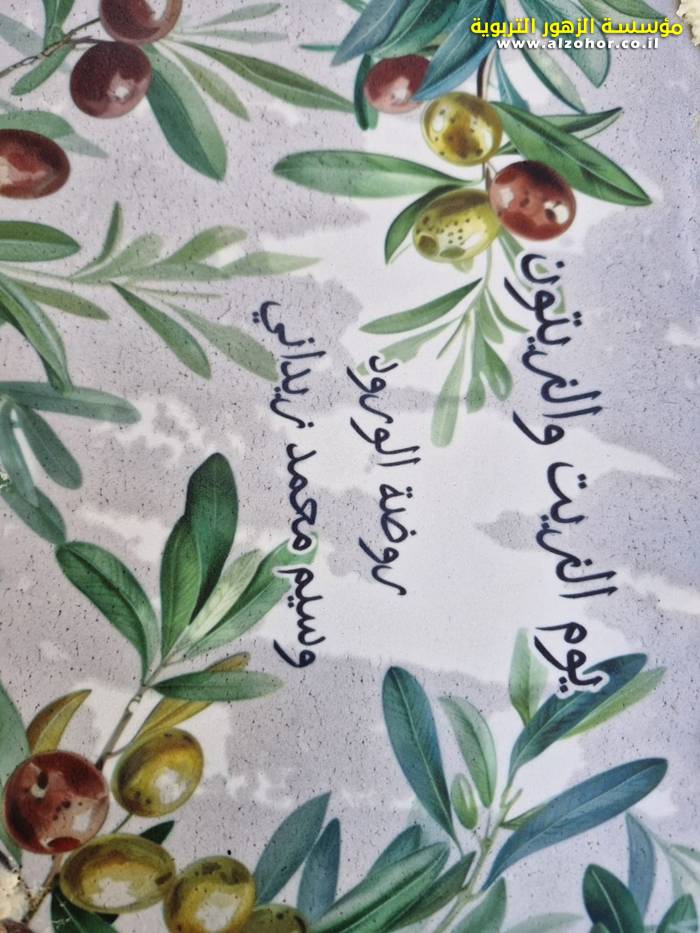 مؤسسة الزهور التربوية
www.alzohor.co.il
يوم الزيت والزيتون
روضة الورود
وسيم محمد زيداني